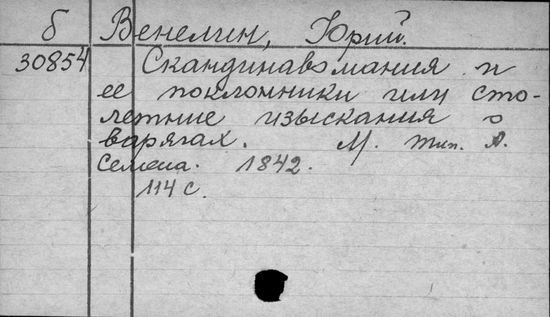 б Венелин, Юрий.
30854 Скандинавомания и
ее поклонники или сто-
летние изыскания о
варягах. М. тип. А.
Семена. 1842.
114 с.